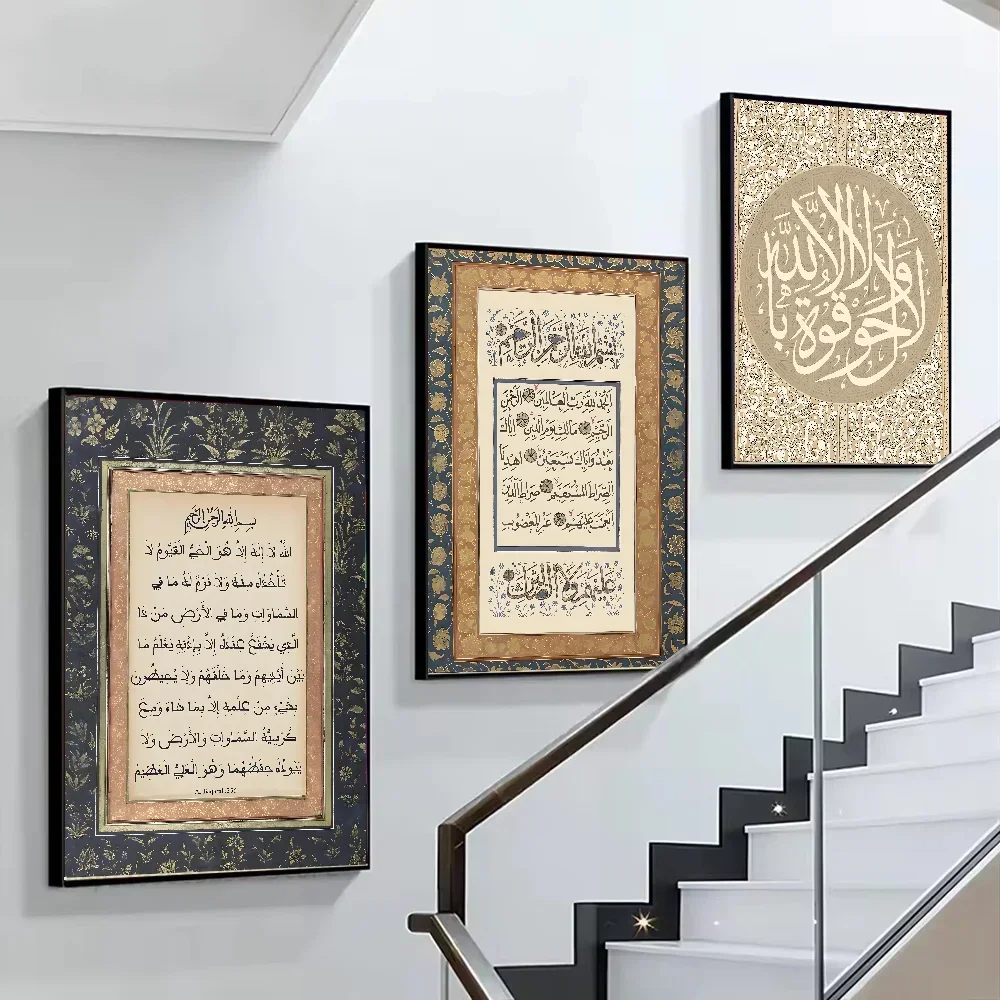 بسم الله الرحمن الرحيم
اللهُ لَا إِلَهَ إِلَّا هُوَ الْحَيُّ الْقَيُّومُ لَا
تَأْخُذُهُ سِنَةٌ وَلَا نَوْمٌ لَهُ مَا فِي
السَّمَاوَاتِ وَمَا فِي الْأَرْضِ مَنْ ذَا
الَّذِي يَشْفَعُ عِنْدَهُ إِلَّا بِإِذْنِهِ يَعْلَمُ مَا
بَيْنَ أَيْدِيهِمْ وَمَا خَلْفَهُمْ وَلَا يُحِيطُونَ
بِشَيْءٍ مِنْ عِلْمِهِ إِلَّا بِمَا شَاءَ وَسِعَ
كُرْسِيُّهُ السَّمَاوَاتِ وَالْأَرْضَ وَلَا
يَئُودُهُ حِفْظُهُمَا وَهُوَ الْعَلِيُّ الْعَظِيمُ
بسم الله الرحمن الرحيم
الحمد لله رب العالمين الرحمن
الرحيم مالك يوم الدين إياك
نعبد وإياك نستعين اهدنا
الصراط المستقيم صراط الذين
أنعمت عليهم غير المغضوب
عليهم ولا الضالين
لا حول ولا قوة إلا بالله